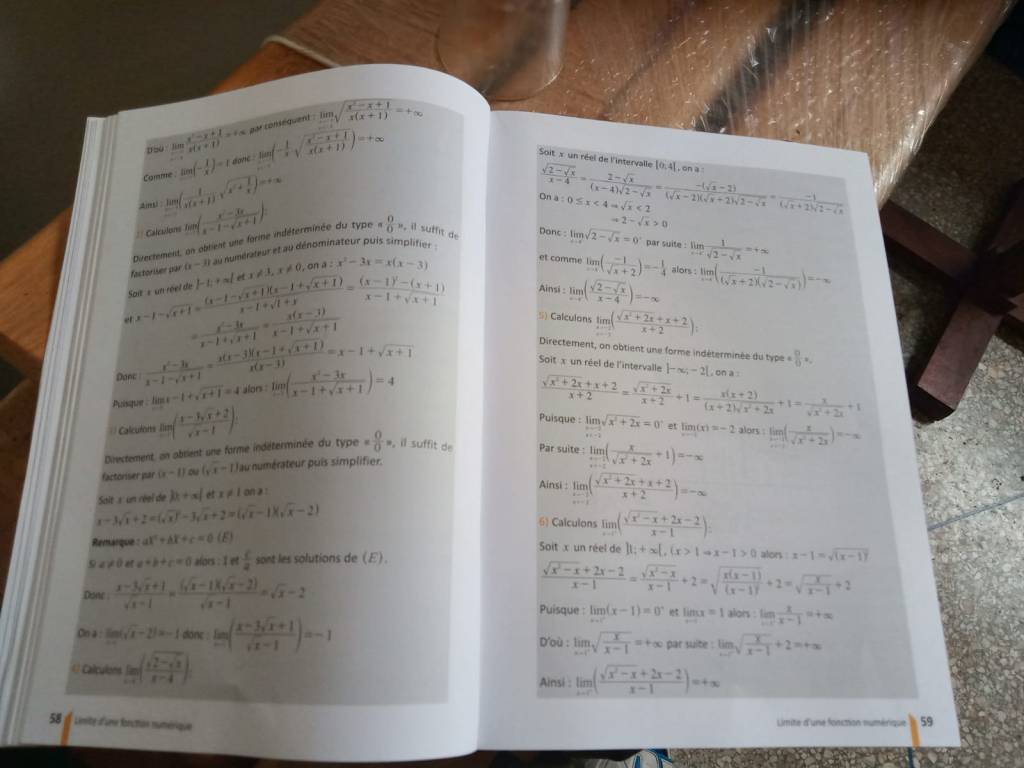 D'où : lim x²−x+1 / x(x+1) = +∞ par conséquent : lim √(x²−x+1 / x(x+1)) = +∞
Comme : lim(−1/x) = 1 donc : lim(−1/x √(x²−x+1 / x(x+1))) = +∞
Ainsi : lim = +∞
2) Calculons lim(x²−3x / x−1−√x+1) :
Directement, on obtient une forme indéterminée du type « 0/0 », il suffit de
factoriser par (x−3) au numérateur et au dénominateur puis simplifier :
Soit x un réel de ]−1; +∞[ et x≠3, x≠0, on a : x²−3x = x(x−3)
et x−1−√x+1 = (x−1−√x+1)(x−1+√x+1) / x−1+√1+x = (x−1)²−(x+1) / x−1+√x+1
= x²−3x / x−1+√x+1 = x(x−3) / x−1+√x+1
Donc : x²−3x / x−1−√x+1 = x(x−3)(x−1+√x+1) / x(x−3) = x−1+√x+1
Puisque : lim x−1+√x+1 = 4 alors : lim(x²−3x / x−1+√x+1) = 4
3) Calculons lim(x−3√x+2 / √x−1) :
Directement, on obtient une forme indéterminée du type « 0/0 », il suffit de
factoriser par (x−1) ou (√x−1) au numérateur puis simplifier.
Soit x un réel de ]0; +∞[ et x≠1 on a :
x−3√x+2 = (√x)²−3√x+2 = (√x−1)(√x−2)
Remarque : aX²+bX+c=0 (E)
Si a≠0 et a+b+c=0 alors : 1 et c/a sont les solutions de (E).
Donc : x−3√x+1 / √x−1 = (√x−1)(√x−2) / √x−1 = √x−2
On a : lim(√x−2) = −1 donc : lim(x−3√x+1 / √x−1) = −1
4) Calculons lim(√2−√x / x−4) :
58 Limite d'une fonction numérique
Soit x un réel de l'intervalle [0;4[, on a :
√2−√x / x−4 = 2−√x / (x−4)√2−√x = −(√x−2) / (√x−2)(√x+2)√2−√x = −1 / (√x+2)√2−√x
On a : 0 ≤ x < 4 ⇒ √x < 2
⇒ 2−√x > 0
Donc : lim √2−√x = 0⁺ par suite : lim 1 / √2−√x = +∞
et comme lim(−1 / √x+2) = −1/4 alors : lim(−1 / (√x+2)(√2−√x)) = −∞
Ainsi : lim(√2−√x / x−4) = −∞
5) Calculons lim(√x²+2x+x+2 / x+2) :
Directement, on obtient une forme indéterminée du type « 0/0 ».
Soit x un réel de l'intervalle ]−∞;−2[, on a :
√x²+2x+x+2 / x+2 = √x²+2x / x+2 + 1 = x(x+2) / (x+2)√x²+2x + 1 = x / √x²+2x + 1
Puisque : lim √x²+2x = 0⁺ et lim(x) = −2 alors : lim(x / √x²+2x) = −∞
Par suite : lim(x / √x²+2x + 1) = −∞
Ainsi : lim(√x²+2x+x+2 / x+2) = −∞
6) Calculons lim(√x²−x+2x−2 / x−1) :
Soit x un réel de ]1; +∞[, (x>1 ⇒ x−1>0 alors : x−1 = √(x−1)²
√x²−x+2x−2 / x−1 = √x²−x / x−1 + 2 = √(x(x−1) / (x−1)²) + 2 = √(x / x−1) + 2
Puisque : lim(x−1) = 0⁺ et lim x = 1 alors : lim x / x−1 = +∞
D'où : lim √(x / x−1) = +∞ par suite : lim √(x / x−1) + 2 = +∞
Ainsi : lim(√x²−x+2x−2 / x−1) = +∞
Limite d'une fonction numérique 59